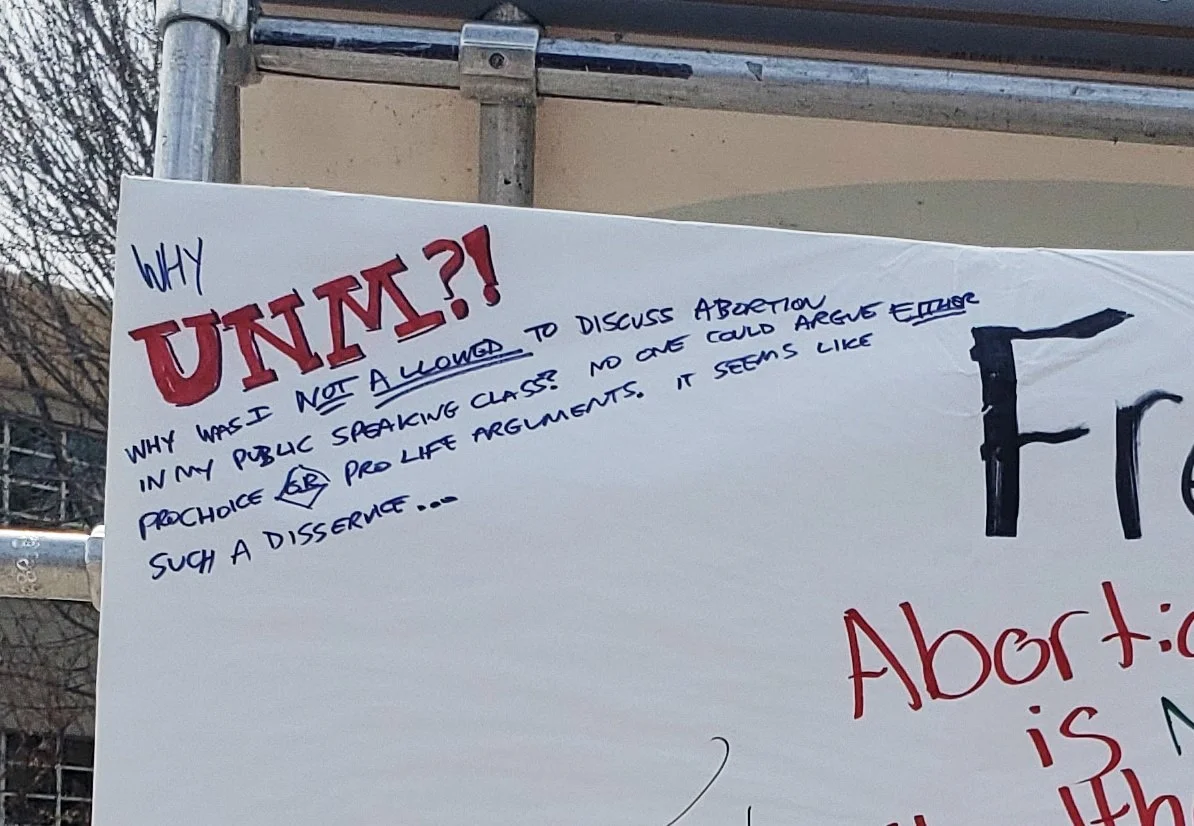 WHY
UNM?!
WHY WAS I NOT ALLOWED TO DISCUSS ABORTION
IN MY PUBLIC SPEAKING CLASS? NO ONE COULD ARGUE EITHER
PROCHOICE OR PRO LIFE ARGUMENTS. IT SEEMS LIKE
SUCH A DISSERVICE...
Fre
Abortio
is